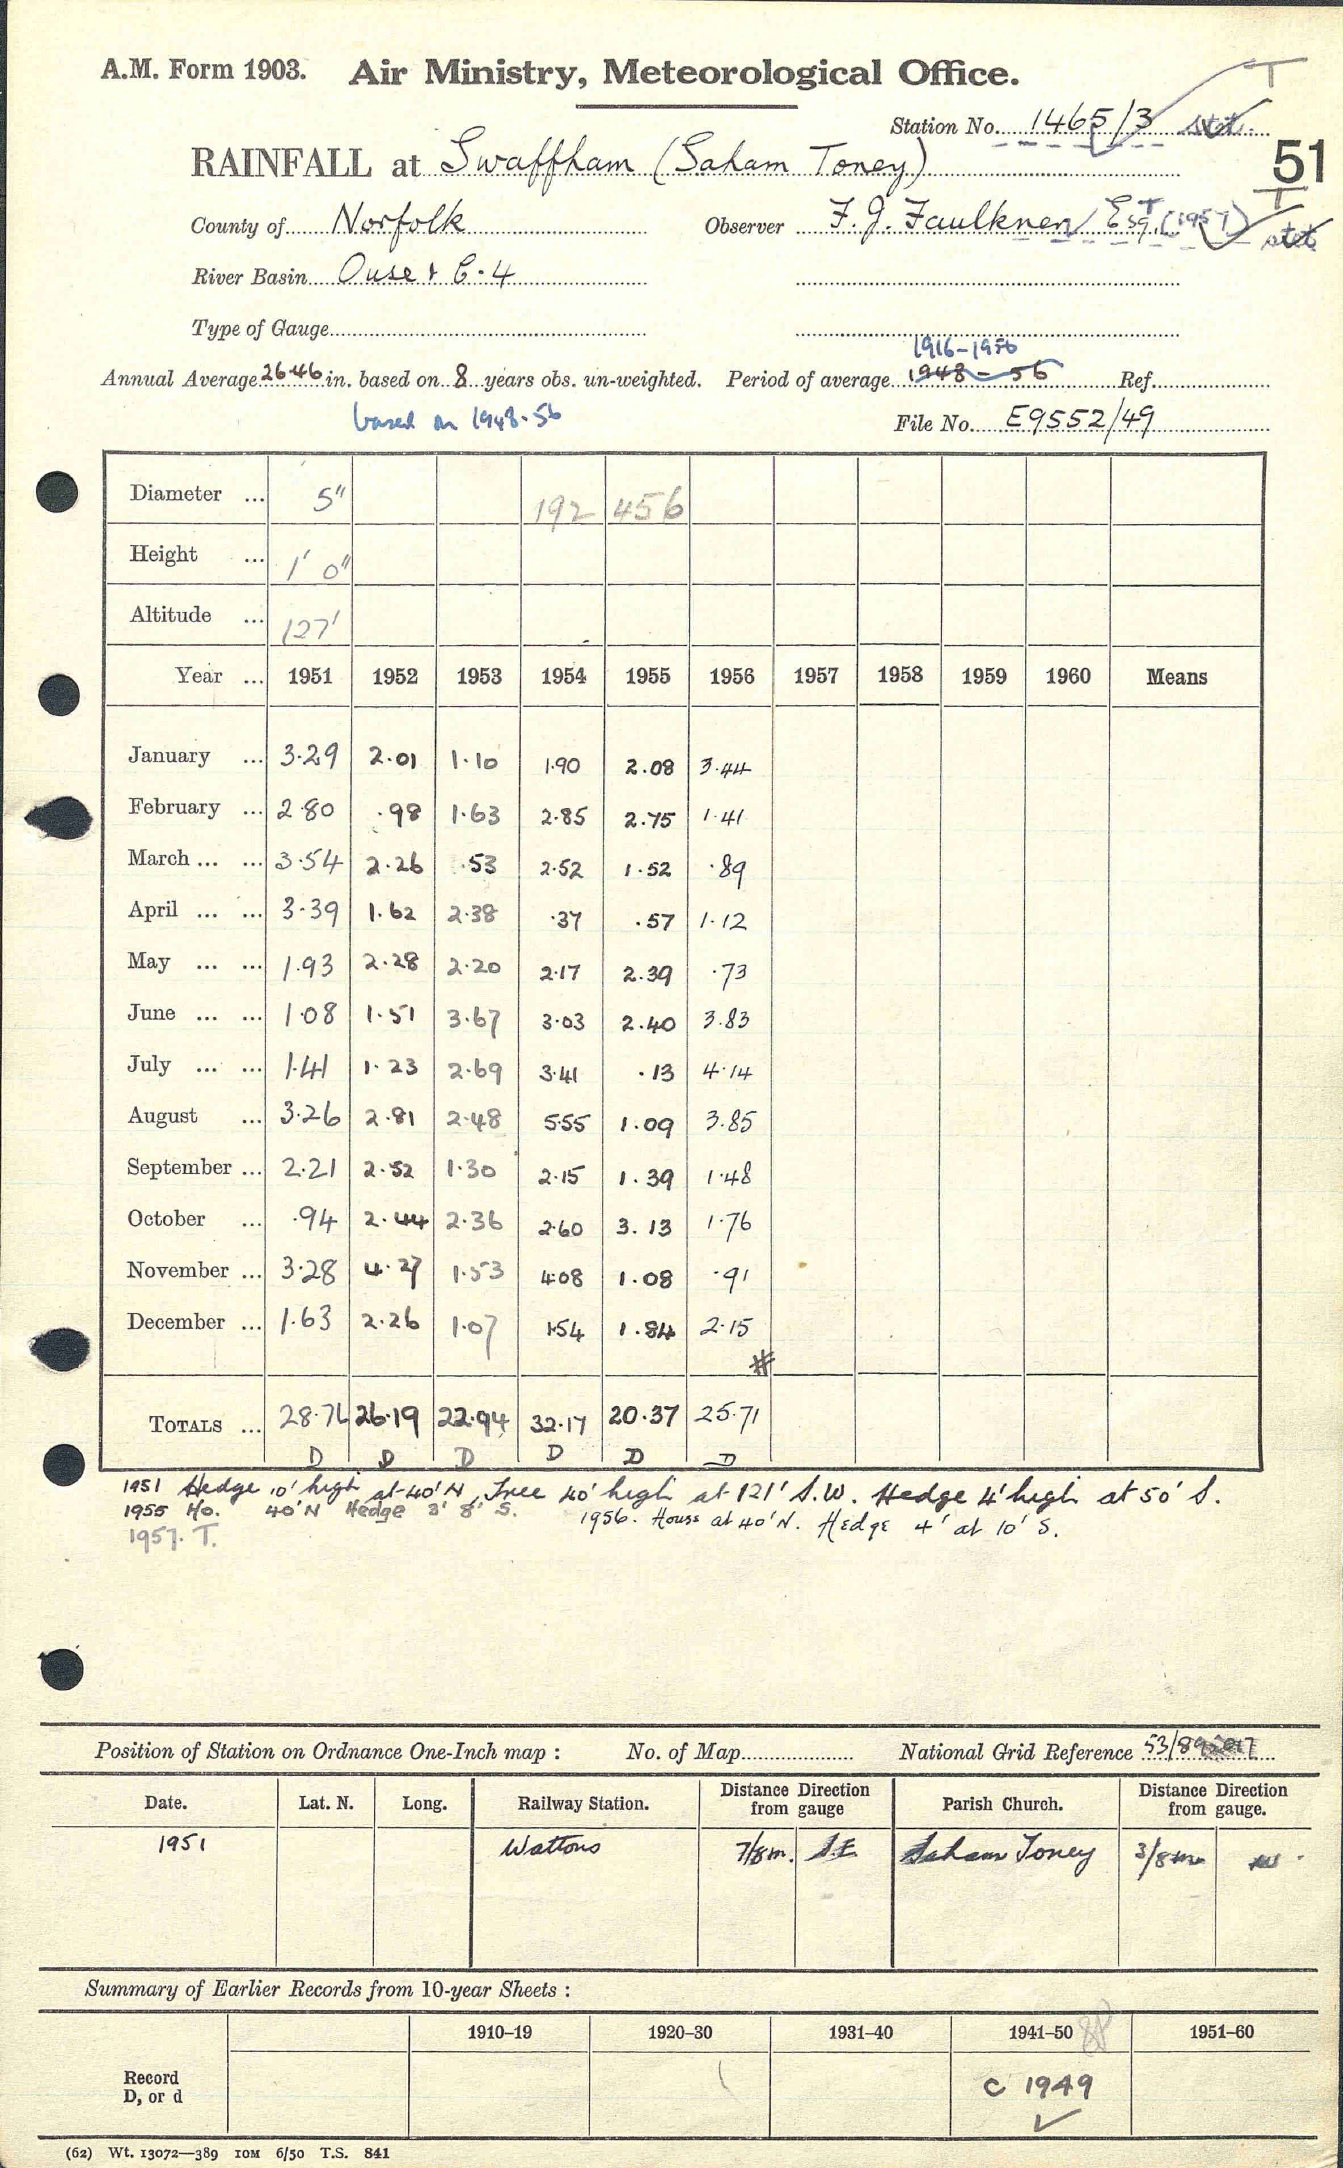 A.M. Form 1903. Air Ministry, Meteorological Office.
T
Station No. 1465/3 stet
RAINFALL at Swaffham (Saham Toney)
51
T
County of Norfolk Observer F. J. Faulkner Esq. T (1957) stet
River Basin Ouse & C.4
Type of Gauge
1916-1956
Annual Average 26.46 in. based on 8 years obs. un-weighted. Period of average 1948 - 56 Ref.
based on 1948-56
File No. E9552/49
Diameter ... 5" 192 456
Height ... 1' 0"
Altitude ... 127'
Year ... 1951 1952 1953 1954 1955 1956 1957 1958 1959 1960 Means
January ... 3.29 2.01 1.10 1.90 2.08 3.44
February ... 2.80 .98 1.63 2.85 2.75 1.41
March ... ... 3.54 2.26 .53 2.52 1.52 .89
April ... ... 3.39 1.62 2.38 .37 .57 1.12
May ... ... 1.93 2.28 2.20 2.17 2.39 .73
June ... ... 1.08 1.51 3.67 3.03 2.40 3.83
July ... ... 1.41 1.23 2.69 3.41 .13 4.14
August ... 3.26 2.81 2.48 5.55 1.09 3.85
September ... 2.21 2.52 1.30 2.15 1.39 1.48
October ... .94 2.44 2.36 2.60 3.13 1.76
November ... 3.28 4.27 1.53 4.08 1.08 .91
December ... 1.63 2.26 1.07 1.54 1.84 2.15
#
TOTALS ... 28.76 26.19 22.94 32.17 20.37 25.71
D D D D D D
1951 Hedge 10' high at 40' N, Tree 40' high at 121' S.W. Hedge 4' high at 50' S.
1955 Ho. 40' N Hedge 3' 8' S. 1956. House at 40' N. Hedge 4' at 10' S.
1957. T.
Position of Station on Ordnance One-Inch map : No. of Map National Grid Reference 53/89
Date. Lat. N. Long. Railway Station. Distance Direction from gauge Parish Church. Distance Direction from gauge.
1951 Wattons 7/8m. S.E. Saham Toney 3/8m W.
Summary of Earlier Records from 10-year Sheets :
1910–19 1920–30 1931–40 1941–50 1951–60
Record
D, or d
C 1949
(62) Wt. 13072—389 10M 6/50 T.S. 841